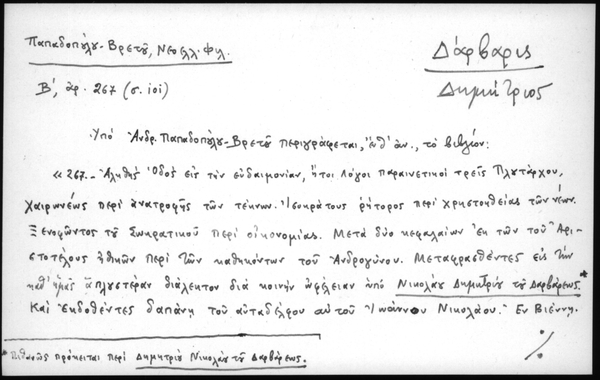 Παπαδοπȣ́λȣ-Βρετȣ͂, Νεοελλ. Φιλ.
Δάρβαρις
Β', ἀρ. 267 (σ. 101)
Δημήτριος
Ὑπὸ Ἀνδρ. Παπαδοπȣ́λȣ-Βρετȣ͂ περιγράφεται, ἔνθ' ἀν., τὸ βιβλίον:
« 267.- Ἀληθὴς Ὁδὸς εἰς τὴν εὐδαιμονίαν, ἤτοι Λόγοι παραινετικοὶ τρεῖς Πλυτάρχου,
Χαιρωνέως περὶ ἀνατροφῆς τῶν τέκνων. Ἰσοκράτους ῥήτορος περὶ χρηστοηθείας τῶν νέων.
Ξενοφῶντος τȣ͂ Σωκρατικοῦ περὶ οἰκονομίας. Μετὰ δύο κεφαλαίων ἐκ τῶν τοῦ Ἀρι-
στοτέλους ἠθικῶν περὶ τῶν καθηκόντων τοῦ Ἀνδρογύνου. Μεταφρασθέντες εἰς τὴν
καθ' ἡμᾶς ἁπλυστέραν διάλεκτον διὰ κοινὴν ὠφέλειαν ὑπὸ Νικολάου Δημητρίου τȣ͂ Δαρβάρεως*
Καὶ ἐκδοθέντες δαπάνῃ τοῦ αὐταδέλφου αὐτοῦ Ἰωάννου Νικολάου." Ἐν Βιέννῃ.
*Πιθανῶς πρόκειται περὶ Δημητρίου Νικολάου τȣ͂ Δαρβάρεως.
./.